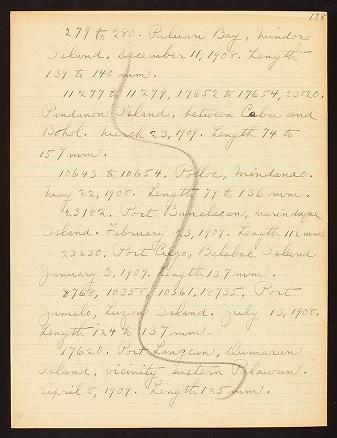 178
279 to 280. Paluan Bay, Mindoro
Island. December 11, 1908. Length
139 to 140 mm.
11277 to 11279, 17652 to 17654, 23820.
Pandanon Island, between Cebu and
Bohol. March 23, 1909. Length 74 to
157 mm.
10643 to 10654. Polloc, Mindanao.
May 22, 1908. Length 79 to 136 mm.
23182. Port Banalacan, Marinduque
Island. February 23, 1909. Length 111 mm.
23630. Port Ciego, Balabac Island
January 3, 1909. Length 137 mm.
8768, 10358, 10361, 18735. Port
Jamelo, Luzon Island. July 13, 1908.
Length 124 to 137 mm.
17620. Port Langcan, Dumaran
Island, vicinity eastern Palawan.
April 8, 1909. Length 125 mm.